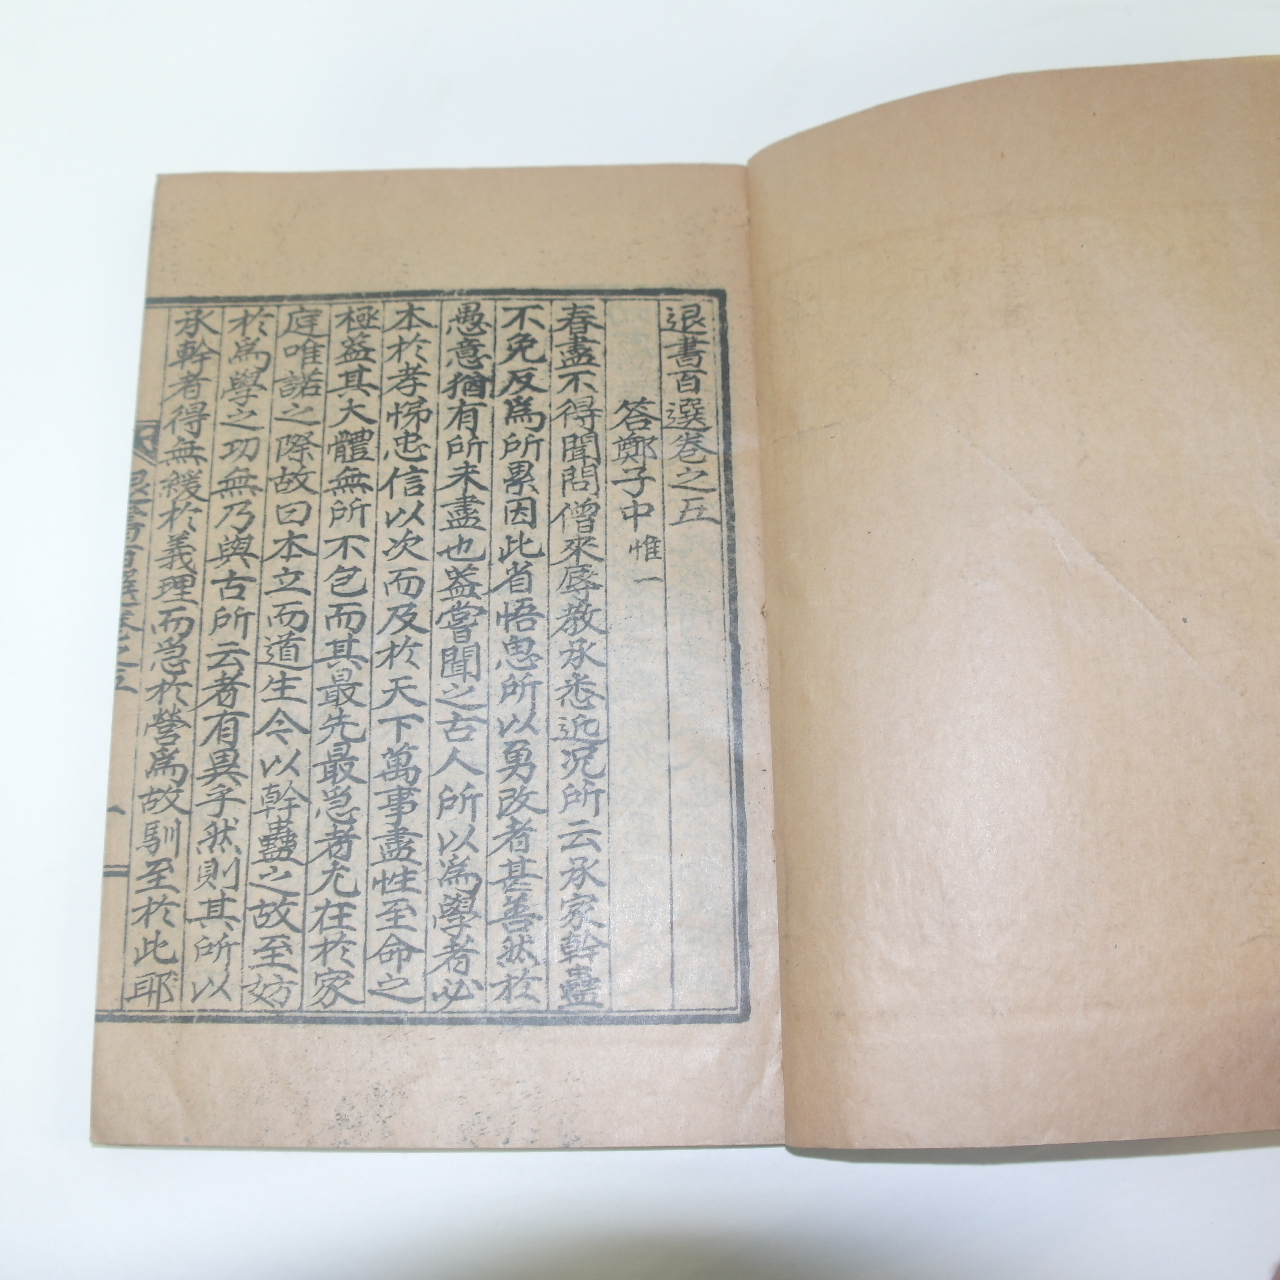 退書百選卷之五
答鄭子中惟一
春盡不得聞問僧來辱教承悉近況所云承家幹蠱
不免反爲所累因此省悟思所以勇改者甚善然於
愚意猶有所未盡也蓋嘗聞之古人所以爲學者必
本於孝悌忠信以次而及於天下萬事盡性至命之
極蓋其大體無所不包而其最先最急者尤在於家
庭唯諾之際故曰本立而道生今以幹蠱之故至妨
於爲學之功無乃與古所云者有異乎然則其所以
承幹者得無緩於義理而急於營爲故馴至於此耶
退書百選卷之五
一